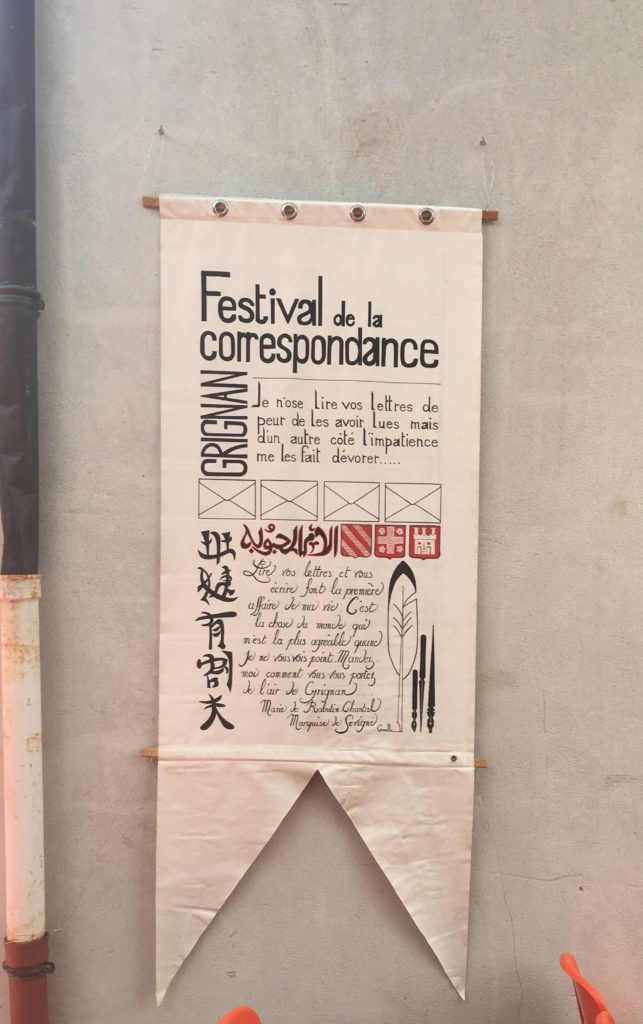 Festival de la
correspondance
GRIGNAN
Je n'ose lire vos lettres de
peur de les avoir lues mais
d'un autre côté l'impatience
me les fait dévorer.....
Lire vos lettres et vous
écrire font la première
affaire de ma vie C'est
la chose du monde qui
m'est la plus agréable quand
Je ne vous vois point. Mandez.
moi comment vous vous portez
de l'air de Grignan.....
Marie de Rabutin Chantal
Marquise de Sévigné